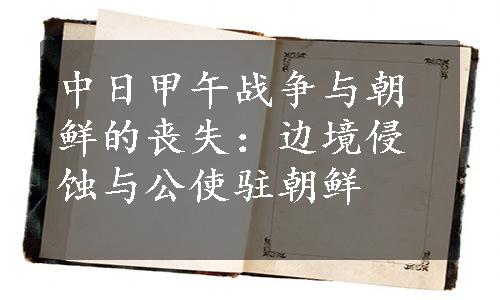 中日甲午战争与朝
鲜的丧失：边境侵
蚀与公使驻朝鲜